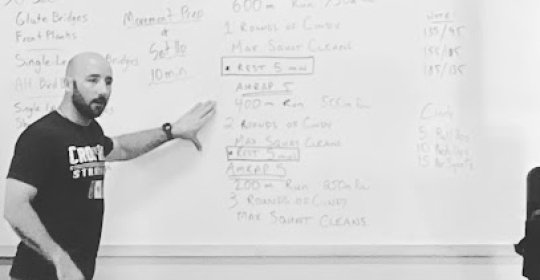 Glute Bridges
Front Planks
Single Leg Bridges
Movement Prep
&
Set Up
10 min
600m Run
1 Rounds of Cindy
Max Squat Cleans
• Rest 5 min
AMRAP 5
400m Run 500m Row
2 Rounds of Cindy
Max Squat Cleans
• Rest 5 min
AMRAP 5
200m Run 250m Row
3 Rounds of Cindy
Max Squat Cleans
135/95
155/105
185/135
Cindy
5 Pull Ups
10 Push Ups
15 Air Squats
CROSSFIT